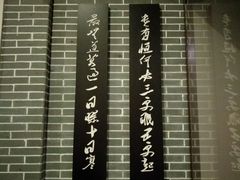 貴有恒何必三更眠五更起
最無益莫過一日曝十日寒